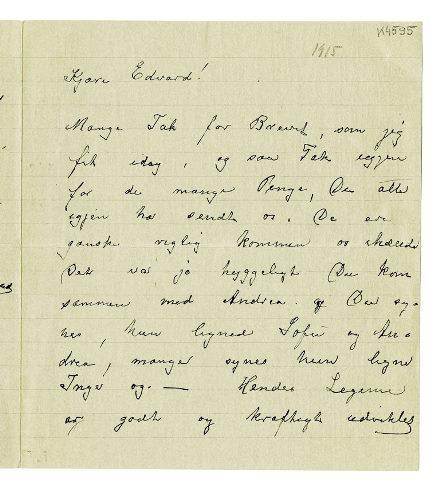 K4595
1915
Kjære Edvard!
Mange Tak for Brevet, som jeg
fik idag, og saa Tak igjen
for de mange Penge, Du atter
igjen ha sendt os. De er
ganske rigtig kommen os ihænde
Det var jo hyggeligt Du kom
sammen med Andrea. Du sy-
nes, hun ligned Sofie og An-
drea, mange synes hun ligne
Inger og. — Hendes Legeme
er godt og kraftigt udvikled